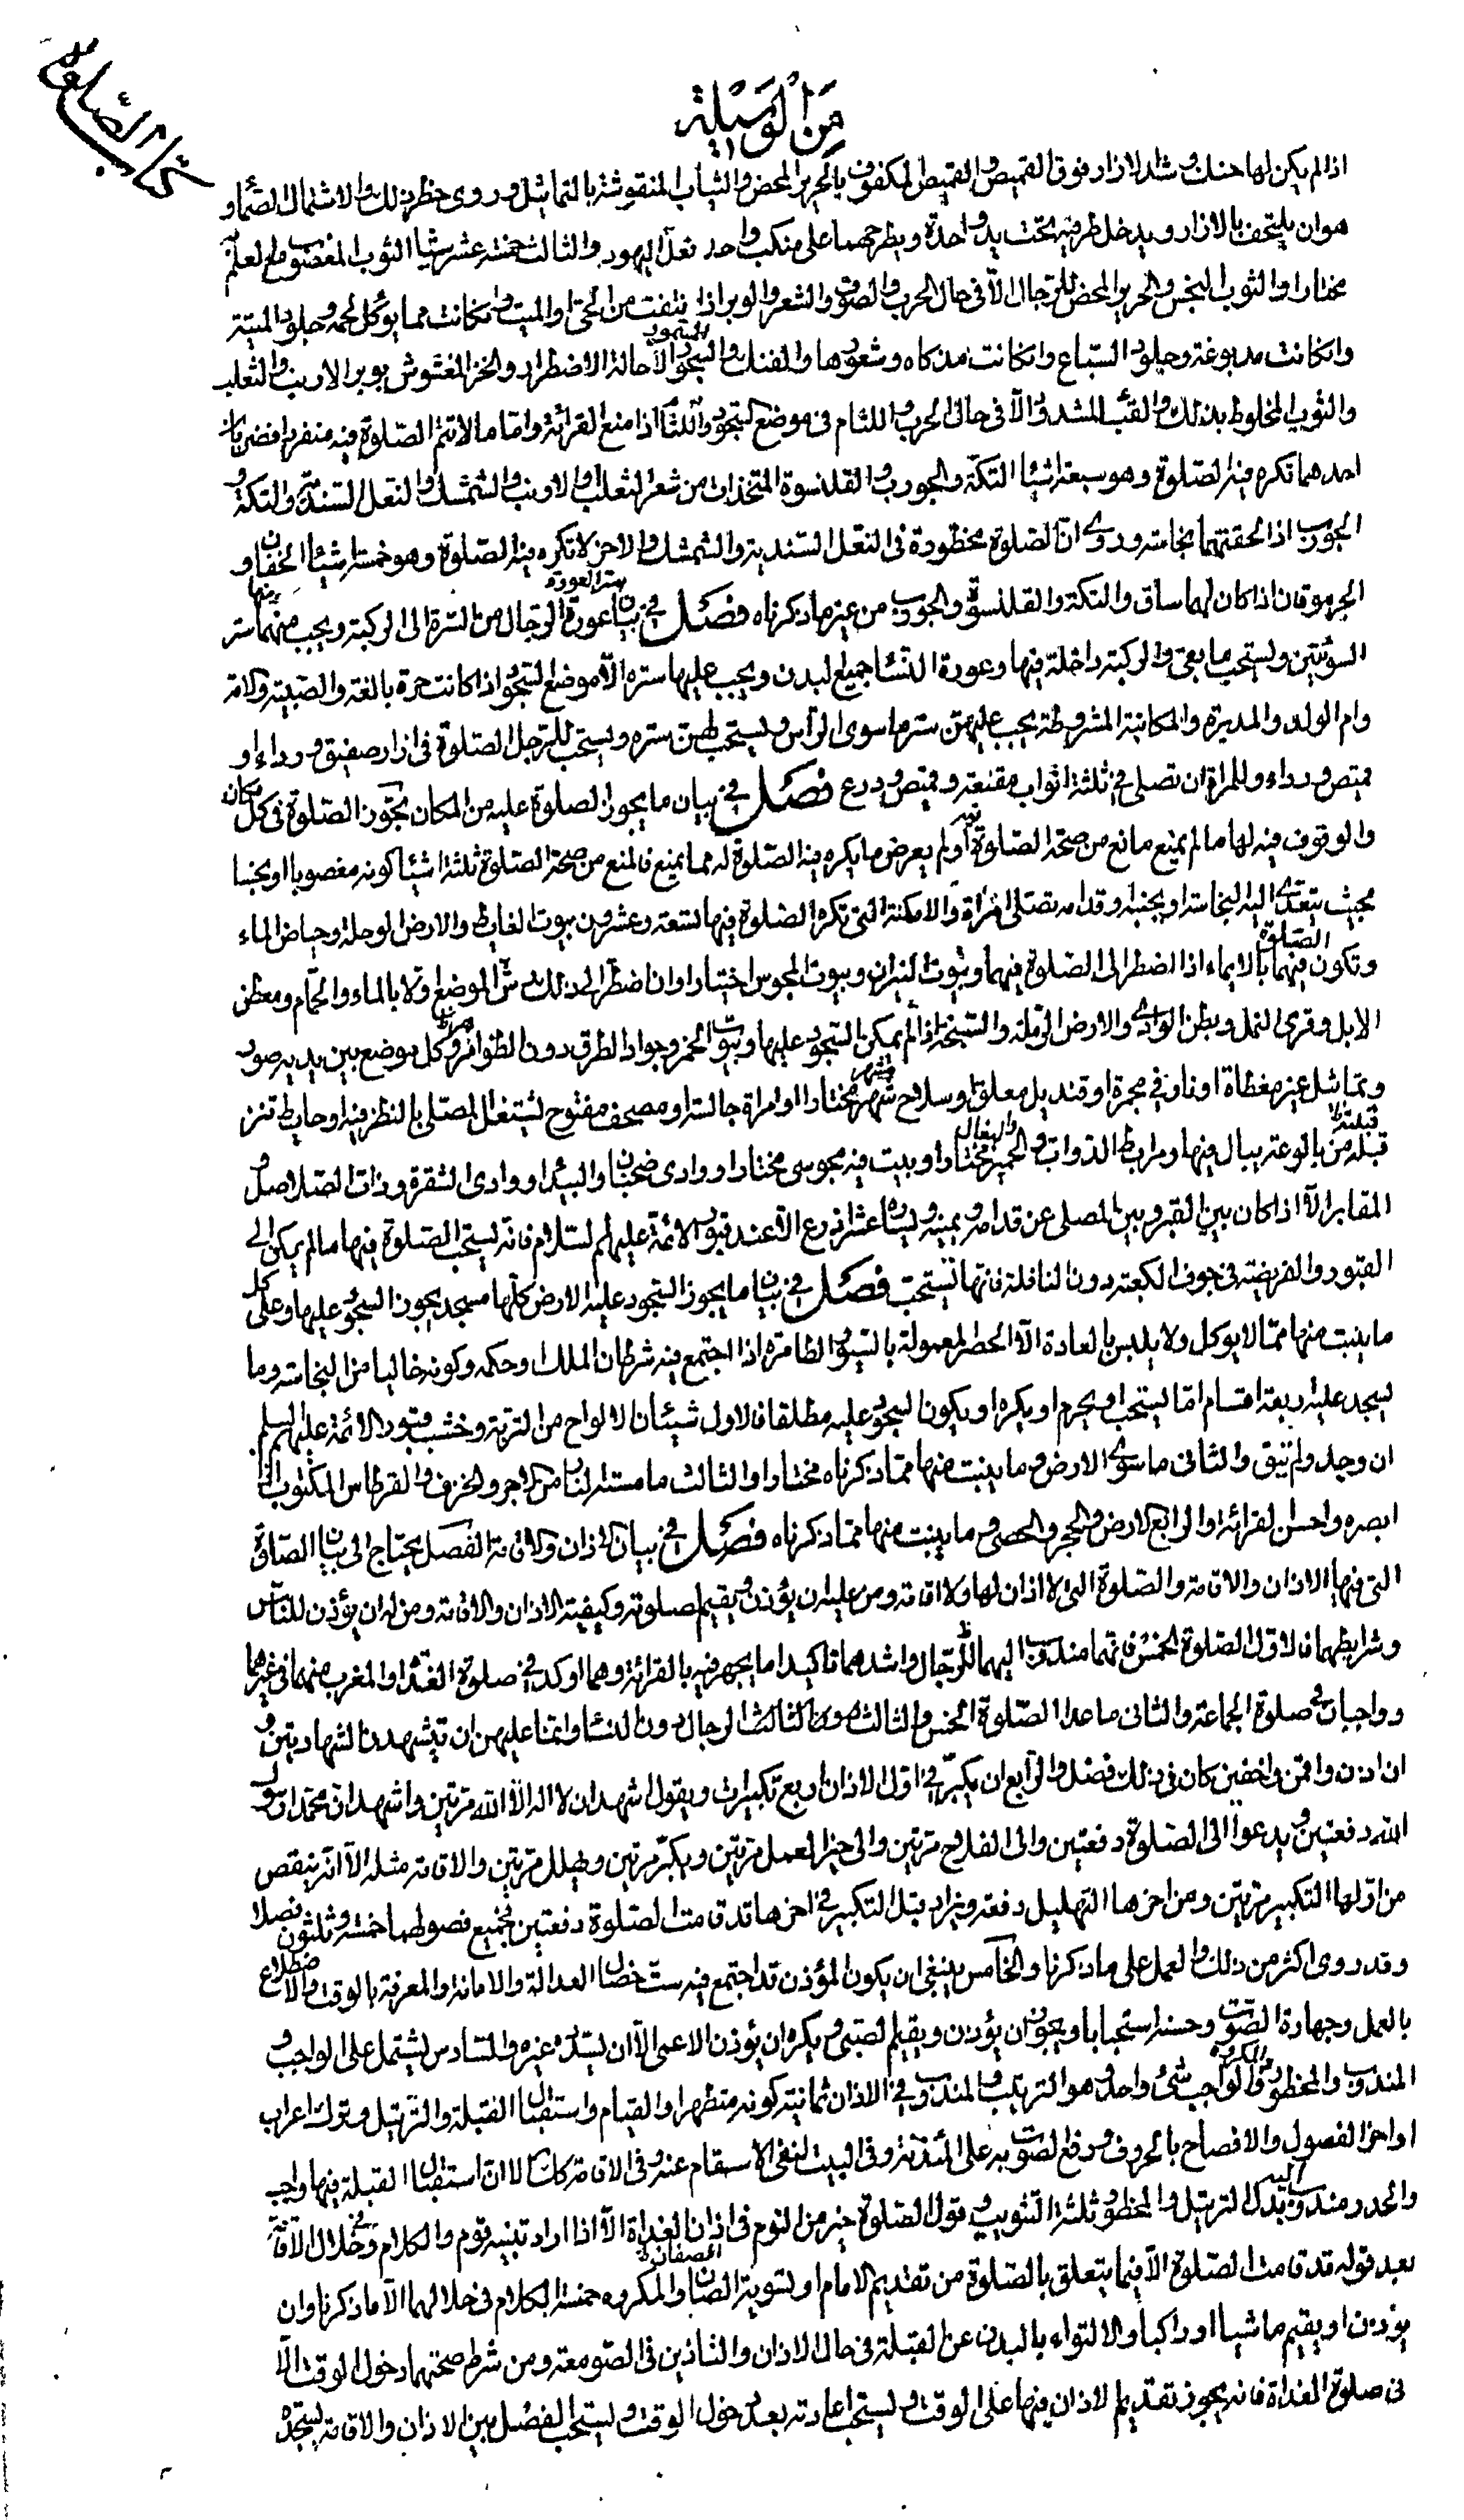 كتاب الصلوة
من الوسيلة
اذا لم يكن لها حنك وشد الازار فوق القميص والقميص المكفوف بالحرير المحض والثياب المنقوشة بالتماثيل وروى حظر ذلك والاشتمال الصماء و
هو ان يلتحف بالازار ويدخل طرفيه تحت يد واحدة ويطرحهما على منكب واحد فعل اليهود والثالث خمسة عشر شيئا الثوب المغصوب مع العلم
مختارا والثوب النجس والحرير المحض للرجال الا فى حال الحرب والصوف والشعر والوبر اذا نتفت من الحى او الميت وانكانت مما يؤكل لحمه وجلود الميتة
وانكانت مدبوغة وجلود السباع وانكانت مذكاه وشعورها والفنك والسمور الا حالة الاضطرار والخز المغشوش بوبر الارنب والثعلب
والثوب المخلوط بذلك والقباء المشدود الا فى حال الحرب واللثام فى موضع السجود واللثام اذا منع القرائة واما ما لا تتم الصلوة فيه منفردا فضربان
احدهما تكره فيه الصلوة وهو سبعة اشياء التكة والجورب والقلنسوة المتخذات من شعر الثعلب والارنب والشمشك والنعل السندية والتكة و
الجورب اذا لحقتهما نجاسة وروى ان الصلوة محظورة فى النعل السندية والشمشك والاخر لا تكره فيه الصلوة وهو خمسة اشياء الخفان و
الجرموقان اذا كان لهما ساق والتكة والقلنسوة والجورب من غير ما ذكرناه فصل فى بيان ستر العورة عورة الرجال من السرة الى الركبة ويجب منهما ستر
السوئتين ويستحب ما بقى والركبة داخلة فيها وعورة النساء جميع البدن ويجب عليها ستره الا موضع السجود اذا كانت حرة بالغة والصبية والامة
وام الولد والمدبرة والمكاتبة المشروطة يجب عليهن ستر ما سوى الرأس ويستحب لهن ستره ويستحب للرجل الصلوة فى ازار صفيق ورداء او
قميص ورداء وللمراة ان تصلى فى ثلثة اثواب مقنعة وقميص ودرع فصل فى بيان ما يجوز الصلوة عليه من المكان تجوز الصلوة فى كل مكان
والوقوف فيه لها ما لم يمنع مانع من صحة الصلوة فيه او لم يعرض ما يكره فيه الصلوة له مما يمنع فالمنع من صحة الصلوة ثلثة اشياء كونه مغصوبا او نجسا
بحيث يتعدى اليه النجاسة او بجنبه وقدامه تصلى امراة والامكنة التى تكره الصلوة فيها تسعة وعشرون بيوت الغايط والارض الوحلة وحياض الماء
وتكون الصلوة فيهما بالايماء اذا اضطر الى الصلوة فيهما وبيوت النيران وبيوت المجوس اختيارا وان اضطر الى ذلك رش الموضع اولا بالماء والحمام ومعطن
الابل وقرى النمل وبطن الوادى والارض الرملة والسبخة اذا لم يمكن السجود عليها وبيوت الخمر وجواد الطرق دون الظواهر وكل موضع بين يديه صور
وتماثيل غير مغطاة او نار فى مجمرة او قنديل معلق او سلاح شهر مختارا او امراة جالسة او مصحف مفتوح يشتغل المصلى بالنظر فيه او حايط تنز
قبلته من بالوعة يبال فيها ومرابط الدواب والبغال والحمير مختارا وبيت فيه مجوسى مختارا ووادى ضجنان والبيداء ووادى الشقرة وذات الصلاصل و
المقابر الا اذا كان بين القبر وبين المصلى عن قدامه ويمينه ويساره عشر اذرع الا عند قبور الائمة عليهم السلام فانه يستحب الصلوة فيها ما لم يكن الى
القبور والفريضة فى جوف الكعبة دون النافلة فانها تستحب فصل فى بيان ما يجوز السجود عليه الارض كلها مسجد يجوز السجود عليها وعلى كل
ما ينبت منها مما لا يوكل ولا يلبس بالعادة الا الحصر المعمولة بالسيور الظاهرة اذا اجتمع فيه شرطان الملك او حكمه وكونه خاليا من النجاسة وما
يسجد عليه اربعة اقسام اما يستحب او يحرم او يكره او يكون السجود عليه مطلقا فالاول شيئان الالواح من التربة وخشب قبور الائمة عليهم السلم
ان وجد ولم يتق والثانى ما سوى الارض وما ينبت منها مما ذكرناه مختارا والثالث ما مسته النار من الاجر والخزف والقرطاس المكتوب اذا
ابصره واحسن القرائة والرابع الارض والحجر والحصى وما ينبت منها مما ذكرناه فصل فى بيان الاذان والاقامة الفصل يحتاج الى بيان الصلوة
التى فيها الاذان والاقامة والصلوة التى لا اذان لها ولا اقامة ومن عليه ان يؤذن ويقيم لصلوته وكيفية الاذان والاقامة ومن له ان يؤذن للناس
وشرايطهما فالاول الصلوة الخمس فانهما مندوب اليهما للرجال واشدهما تاكيدا ما يجهر فيه بالقرائة وهما اوكد فى صلوة الغداة والمغرب منهما فى غيرهما
وواجبان فى صلوة الجماعة والثانى ما عدا الصلوة الخمس والثالث الرجال دون النساء وانما عليهن ان تتشهدن الشهادتين و
ان اذن واقمن واخفين كان فى ذلك فضل والرابع ان يكبر فى اول الاذان اربع تكبيرات ويقول اشهد ان لا اله الا الله مرتين واشهد ان محمدا رسول
الله دفعتين ويدعوا الى الصلوة دفعتين والى الفلاح مرتين والى خير العمل مرتين ويكبر مرتين ويهلل مرتين والاقامة مثله الا انه ينقص
من اولها التكبير مرتين ومن اخرها التهليل دفعة ويزاد قبل التكبير فى اخرها قد قامت الصلوة دفعتين فجميع فصولهما خمسة وثلثون فصلا
وقد روى اكثر من ذلك والعمل على ما ذكرنا والخامس ينبغى ان يكون المؤذن قد اجتمع فيه ست خصال العدالة والامانة والمعرفة بالوقت والاضطلاع
بالعمل وجهارة الصوت وحسنه استحبابا ويجوز ان يؤذن ويقيم الصبى ويكره ان يؤذن الاعمى الا ان يسدده غيره والسادس يشتمل على الواجب و
المندوب والمحظور والمكروه فالواجب شئ واحد وهو الترتيب والمندوب فى الاذان ثمانية كونه متطهرا والقيام واستقبال القبلة والترتيل وترك اعراب
اواخر الفصول والافصاح بالحروف ورفع الصوت به على المئذنة وفى البيت لنفى الاسقام عنه وفى الاقامة كك الا ان استقبال القبلة فيها واجب
والحدر مندوب اليه بدل الترتيل والمحظور ثلثة التثويب وقول الصلوة خير من النوم فى اذان الغداة الا اذا اراد تنبيه قوم والكلام فى خلال الاقامة
بعد قوله قد قامت الصلوة الا فيما يتعلق بالصلوة من تقديم الامام او تسوية الصفان والمكروه خمسة الكلام فى خلالهما الا ما ذكرنا وان
يؤذن او يقيم ماشيا او راكبا والالتواء بالبدن عن القبلة فى حال الاذان والتاذين فى الصومعة ومن شرط صحتهما دخول الوقت الا
فى صلوة الغداة فانه يجوز تقديم الاذان فيها على الوقت ويستحب اعادته بعد دخول الوقت ويستحب الفصل بين الاذان والاقامة بسجدة